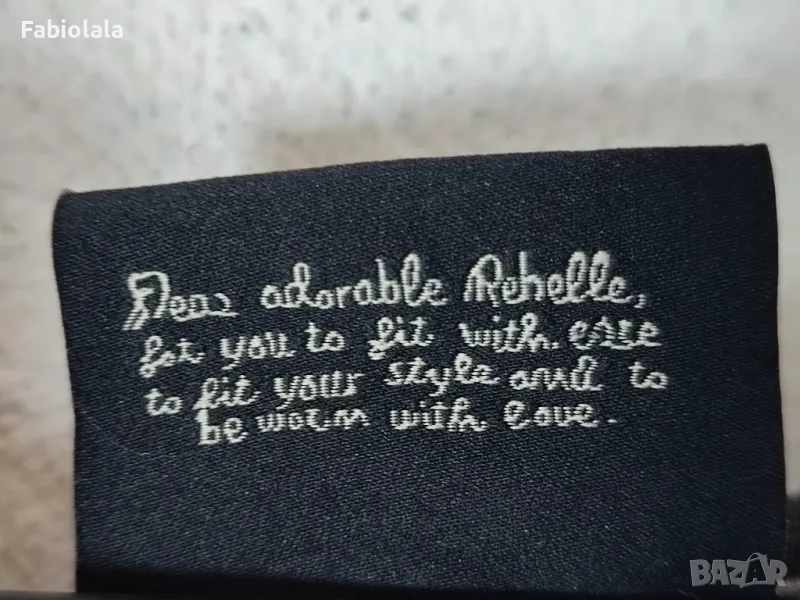 Fabiolala
Dear adorable Rebelle,
for you to fit with ease
to fit your style and to
be worn with love.
BAZAR